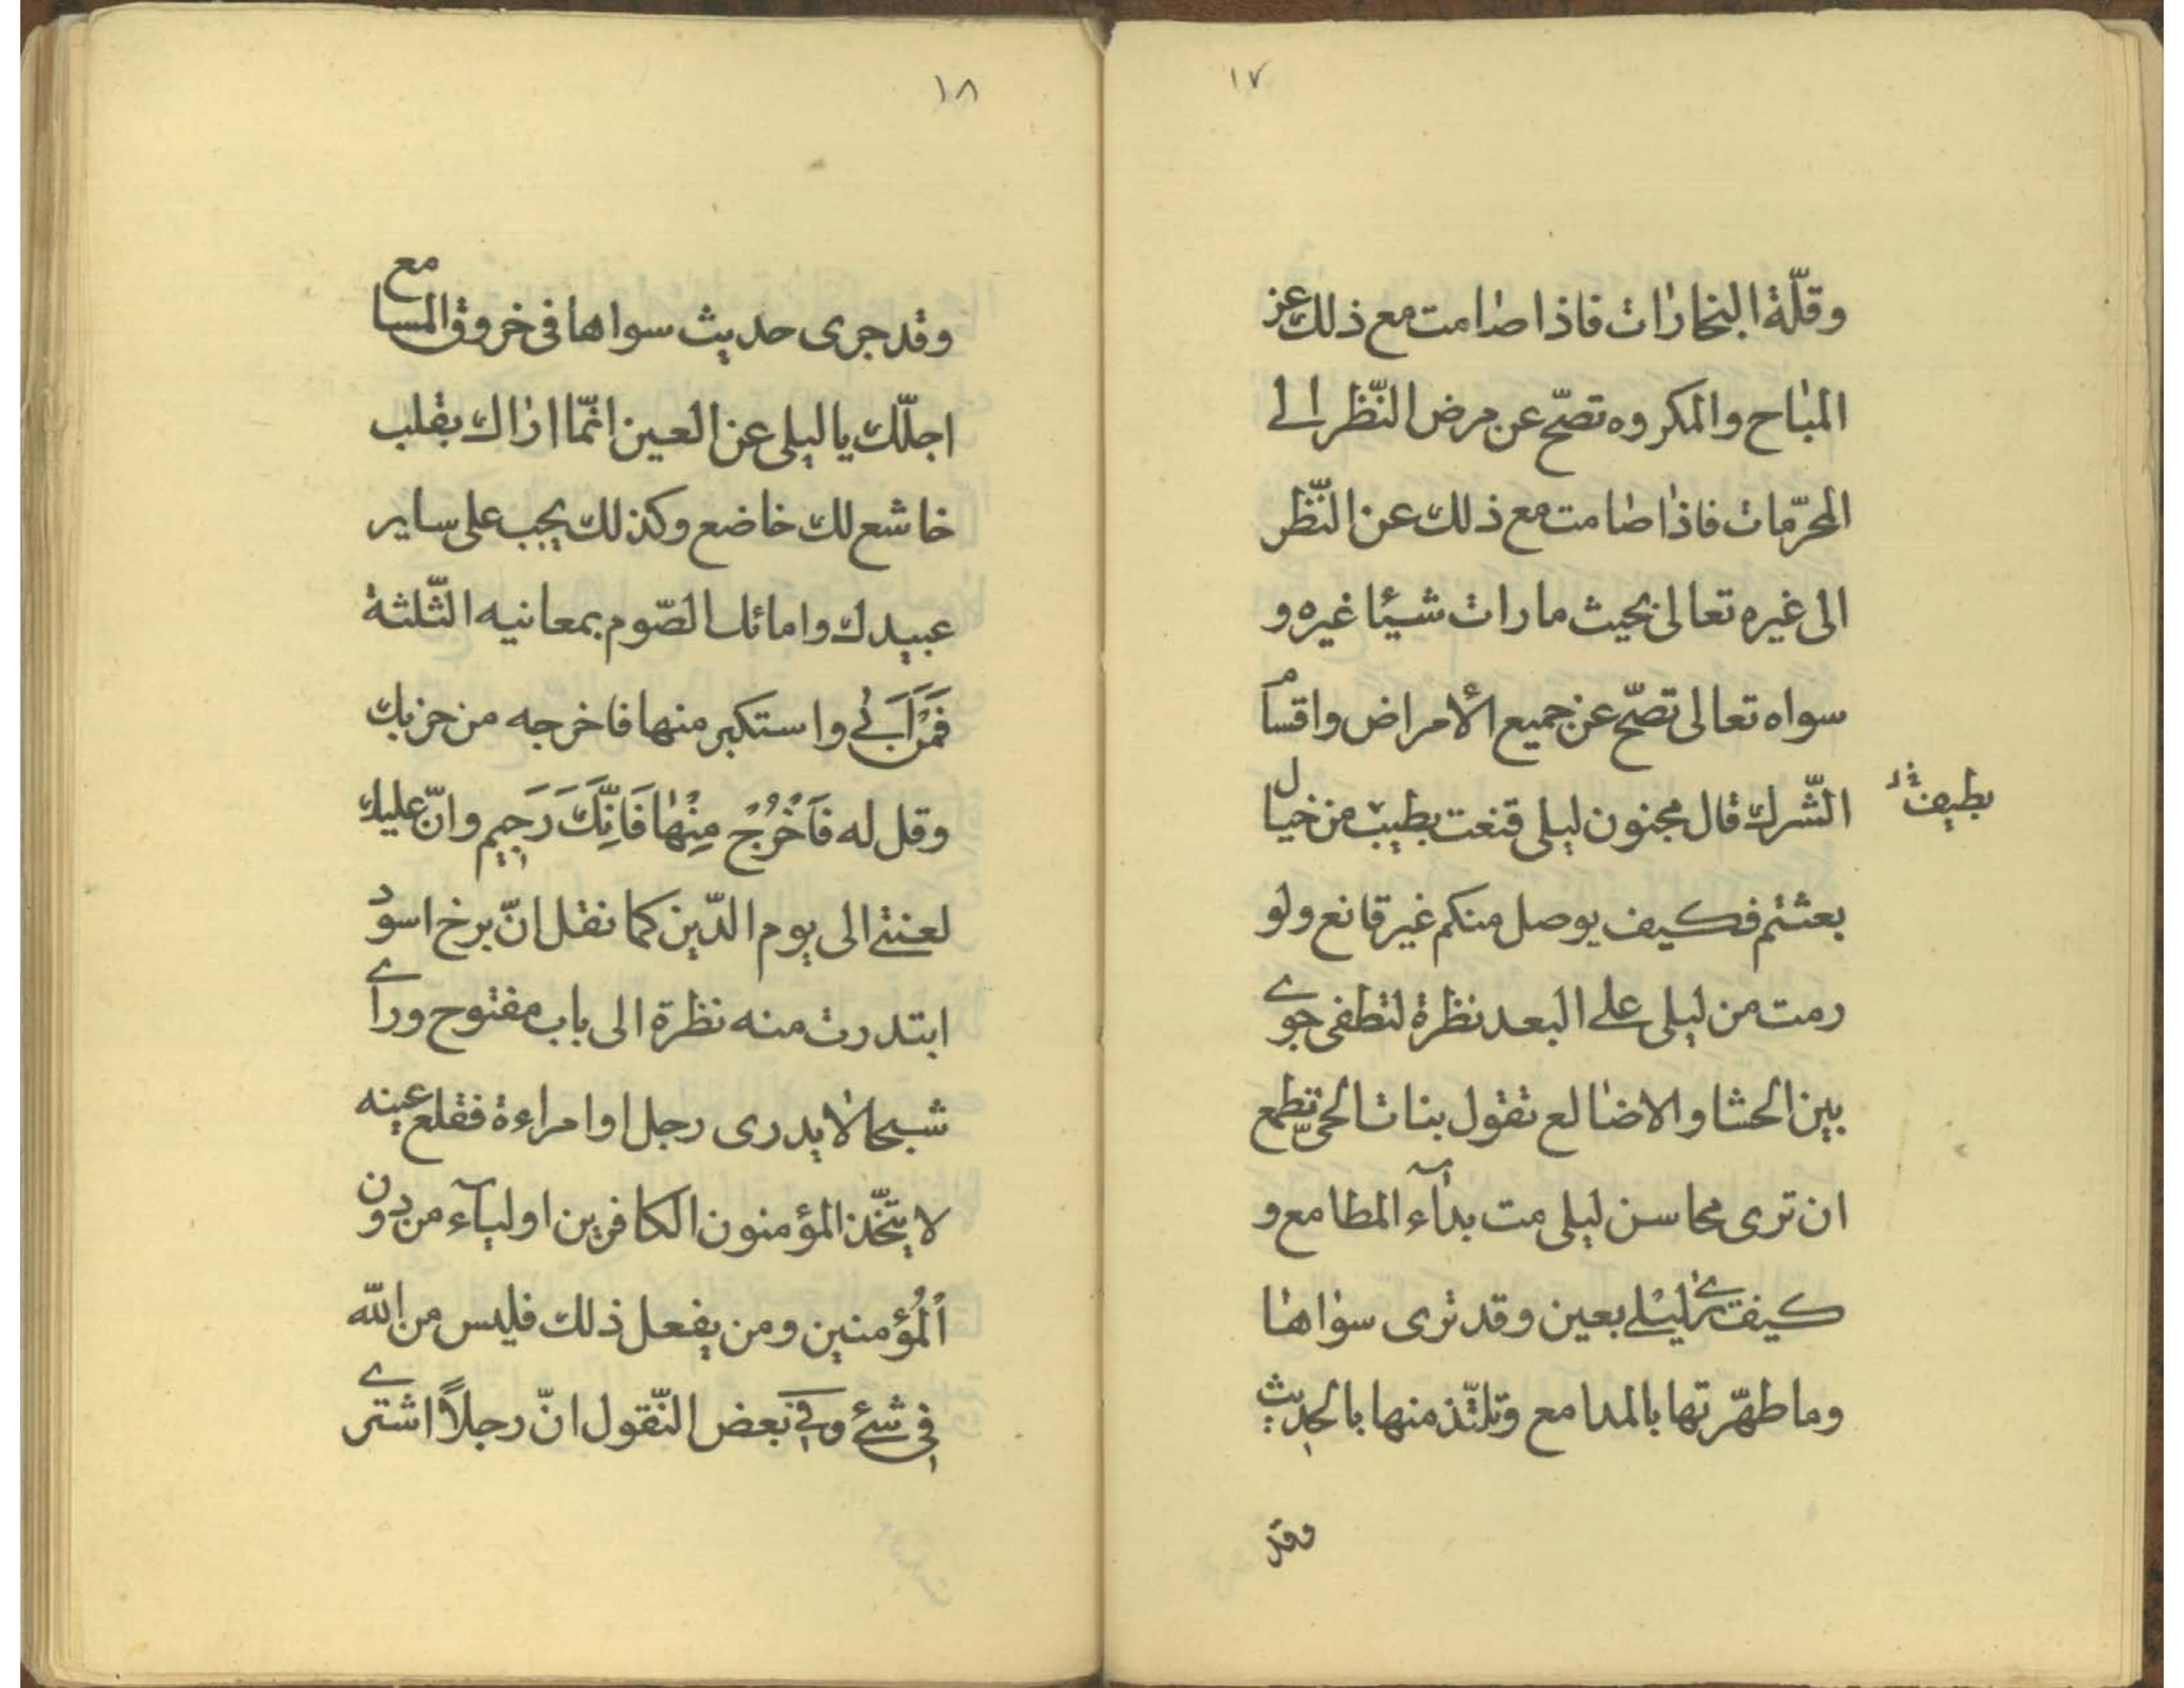 ١٧
وقلّة البخارات فاذا صامت مع ذلك عن
المباح والمكروه تصحّ عن مرض النّظر الى
المحرّمات فاذا صامت مع ذلك عن النّظر
الى غيره تعالى بحيث مارات شيئا غيره و
سواه تعالى تصحّ عن جميع الأمراض واقسام
الشّرك قال مجنون ليلى قنعت بطيب من خيال
بطيف
بعثتم فكيف بوصل منكم غير قانع ولو
رمت من ليلى على البعد نظرة لتطفى جوى
بين الحشا والاضالع تقول بنات الحىّ تطمع
ان ترى محاسن ليلى مت بدآء المطامع و
كيف ترى ليلى بعين وقد ترى سواها
وما طهّرتها بالمدامع وتلتّذ منها بالحديث
وقد
١٨
وقد جرى حديث سواها فى خروق المسامع
اجلّك يا ليلى عن العين انّما اراك بقلب
خاشع لك خاضع وكذلك يجب على ساير
عبيدك وامائك الصّوم بمعانيه الثّلثة
فَمَنْ اَبَىٰ واستكبر منها فاخرجه من حزبك
وقل له فَاَخْرُجْ مِنْهٰا فَاِنَّكَ رَجيم وانّ عليك
لعنتى الى يوم الدّين كما نقل انّ برخ اسود
ابتدرت منه نظرة الى باب مفتوح وراى
شبحا لا يدرى رجل او امراءة فقلع عينه
لا يتّخذ المؤمنون الكافرين اوليآء من دون
اَلْمُؤمنين ومن يفعل ذلك فليس من الله
فى شئ وفى بعض النّقول انّ رجلاً اشترى